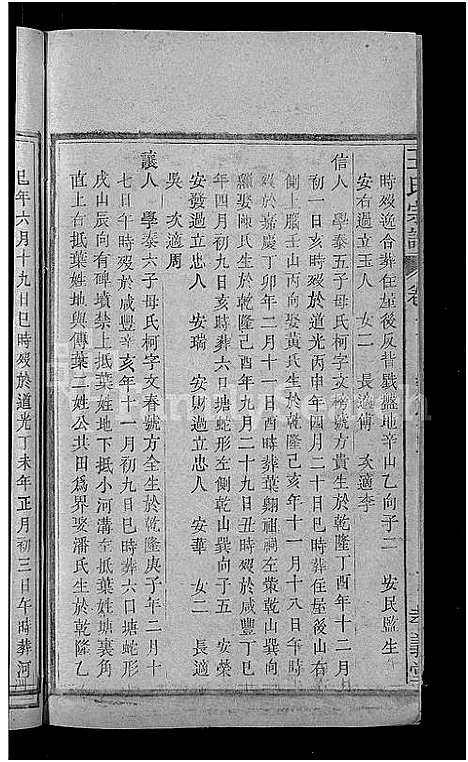 王氏宗譜
卷
時歿逸合葬住屋後反背戲盤地辛山乙向子二　安民監生
安右過立玉人　女二　長適傅　次適李
信人　學泰五子母氏柯字文榜號方貴生於乾隆丁酉年十二月
初一日亥時歿於道光丙申年四月二十日巳時葬住屋後山右
側上腦壬山丙向娶黃氏生於乾隆己亥年十一月十八日午時
歿於嘉慶丁卯年二月十一日酉時葬葉翺祖祠左棠乾山巽向
繼娶陳氏生於乾隆己酉年九月二十九日丑時歿於咸豐丁巳
年四月初九日亥時葬六口塘蛇形左側乾山巽向子五　安榮
安發過立忠人　安瑞　安財過立忠人　安華　女二　長適
吳　次適周
讓人　學泰六子母氏柯字文春號方全生於乾隆庚子年二月十
七日午時歿於咸豐辛亥年十一月初九日巳時葬六口塘蛇形
戌山辰向有碑墳禁上抵葉姓地下抵小河溝左抵葉姓塘裏角
直上右抵葉姓地與傳葉二姓公共田爲界娶潘氏生於乾隆乙
巳年六月十九日巳時歿於道光丁未年正月初三日午時葬河